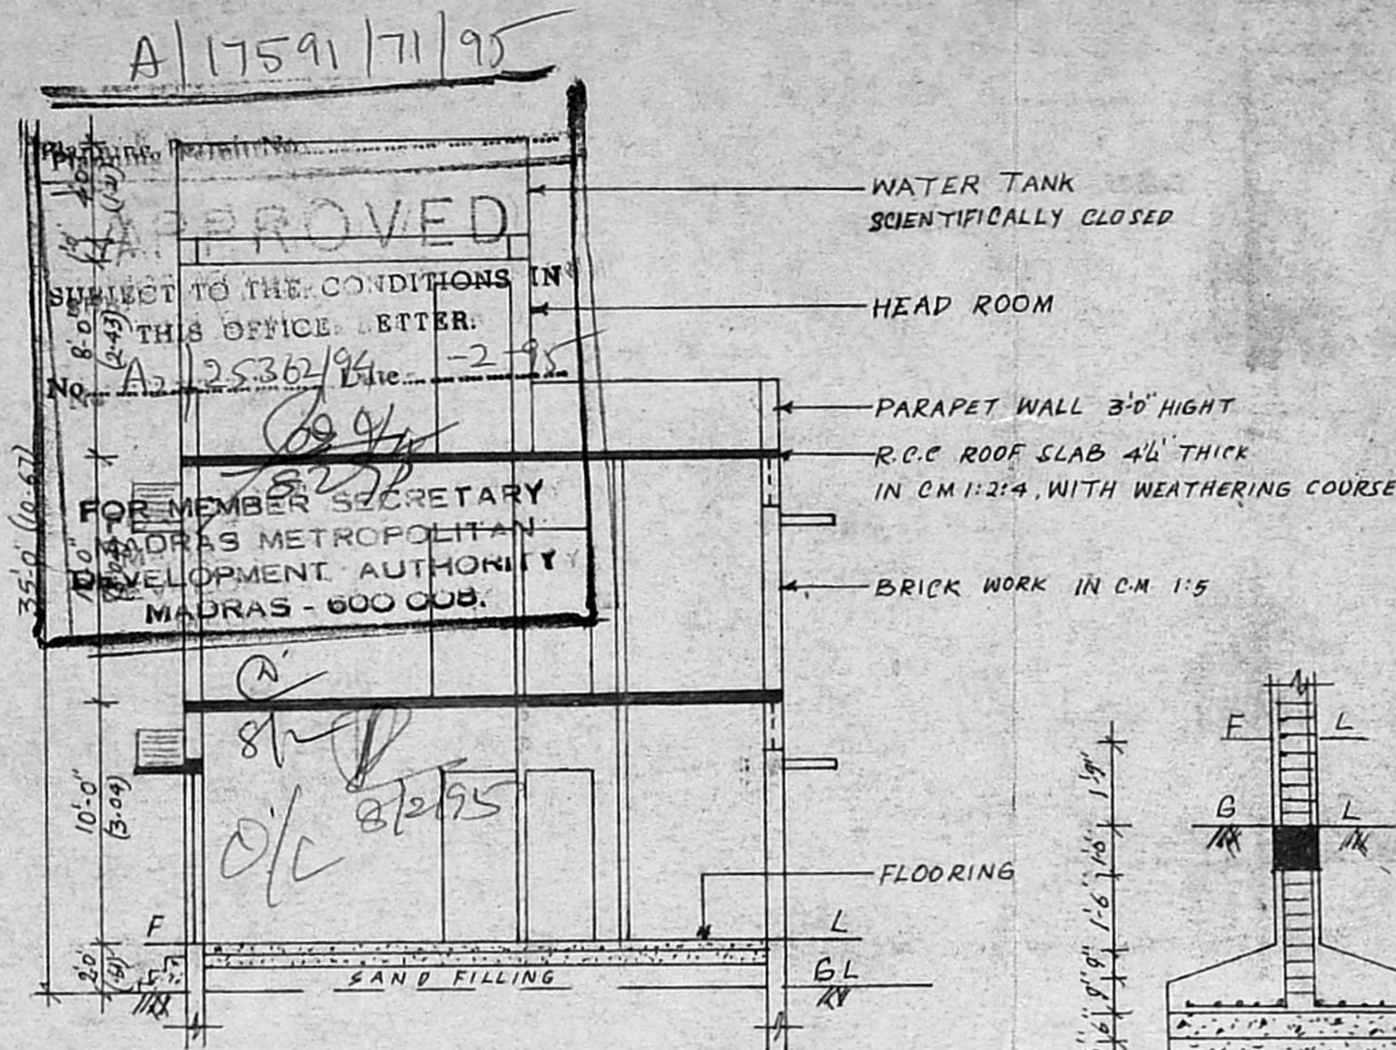 A/17591/71/95
Planning Permit No.
APPROVED
SUBJECT TO THE CONDITIONS IN
THIS OFFICE LETTER.
No. A2/25362/94 Date -2-95
FOR MEMBER SECRETARY
MADRAS METROPOLITAN
DEVELOPMENT AUTHORITY
MADRAS - 600 008.
8/2/95
O/C
WATER TANK
SCIENTIFICALLY CLOSED
HEAD ROOM
PARAPET WALL 3'-0" HIGHT
R.C.C ROOF SLAB 4½" THICK
IN CM 1:2:4, WITH WEATHERING COURSE
BRICK WORK IN C.M 1:5
FLOORING
F L
SAND FILLING
G.L
35'-0" (10.67)
8'-0"
(2.43)
10'-0"
(3.04)
2'-0"
F L
G L
1'-9"
1'-6"
9"
9"
6"